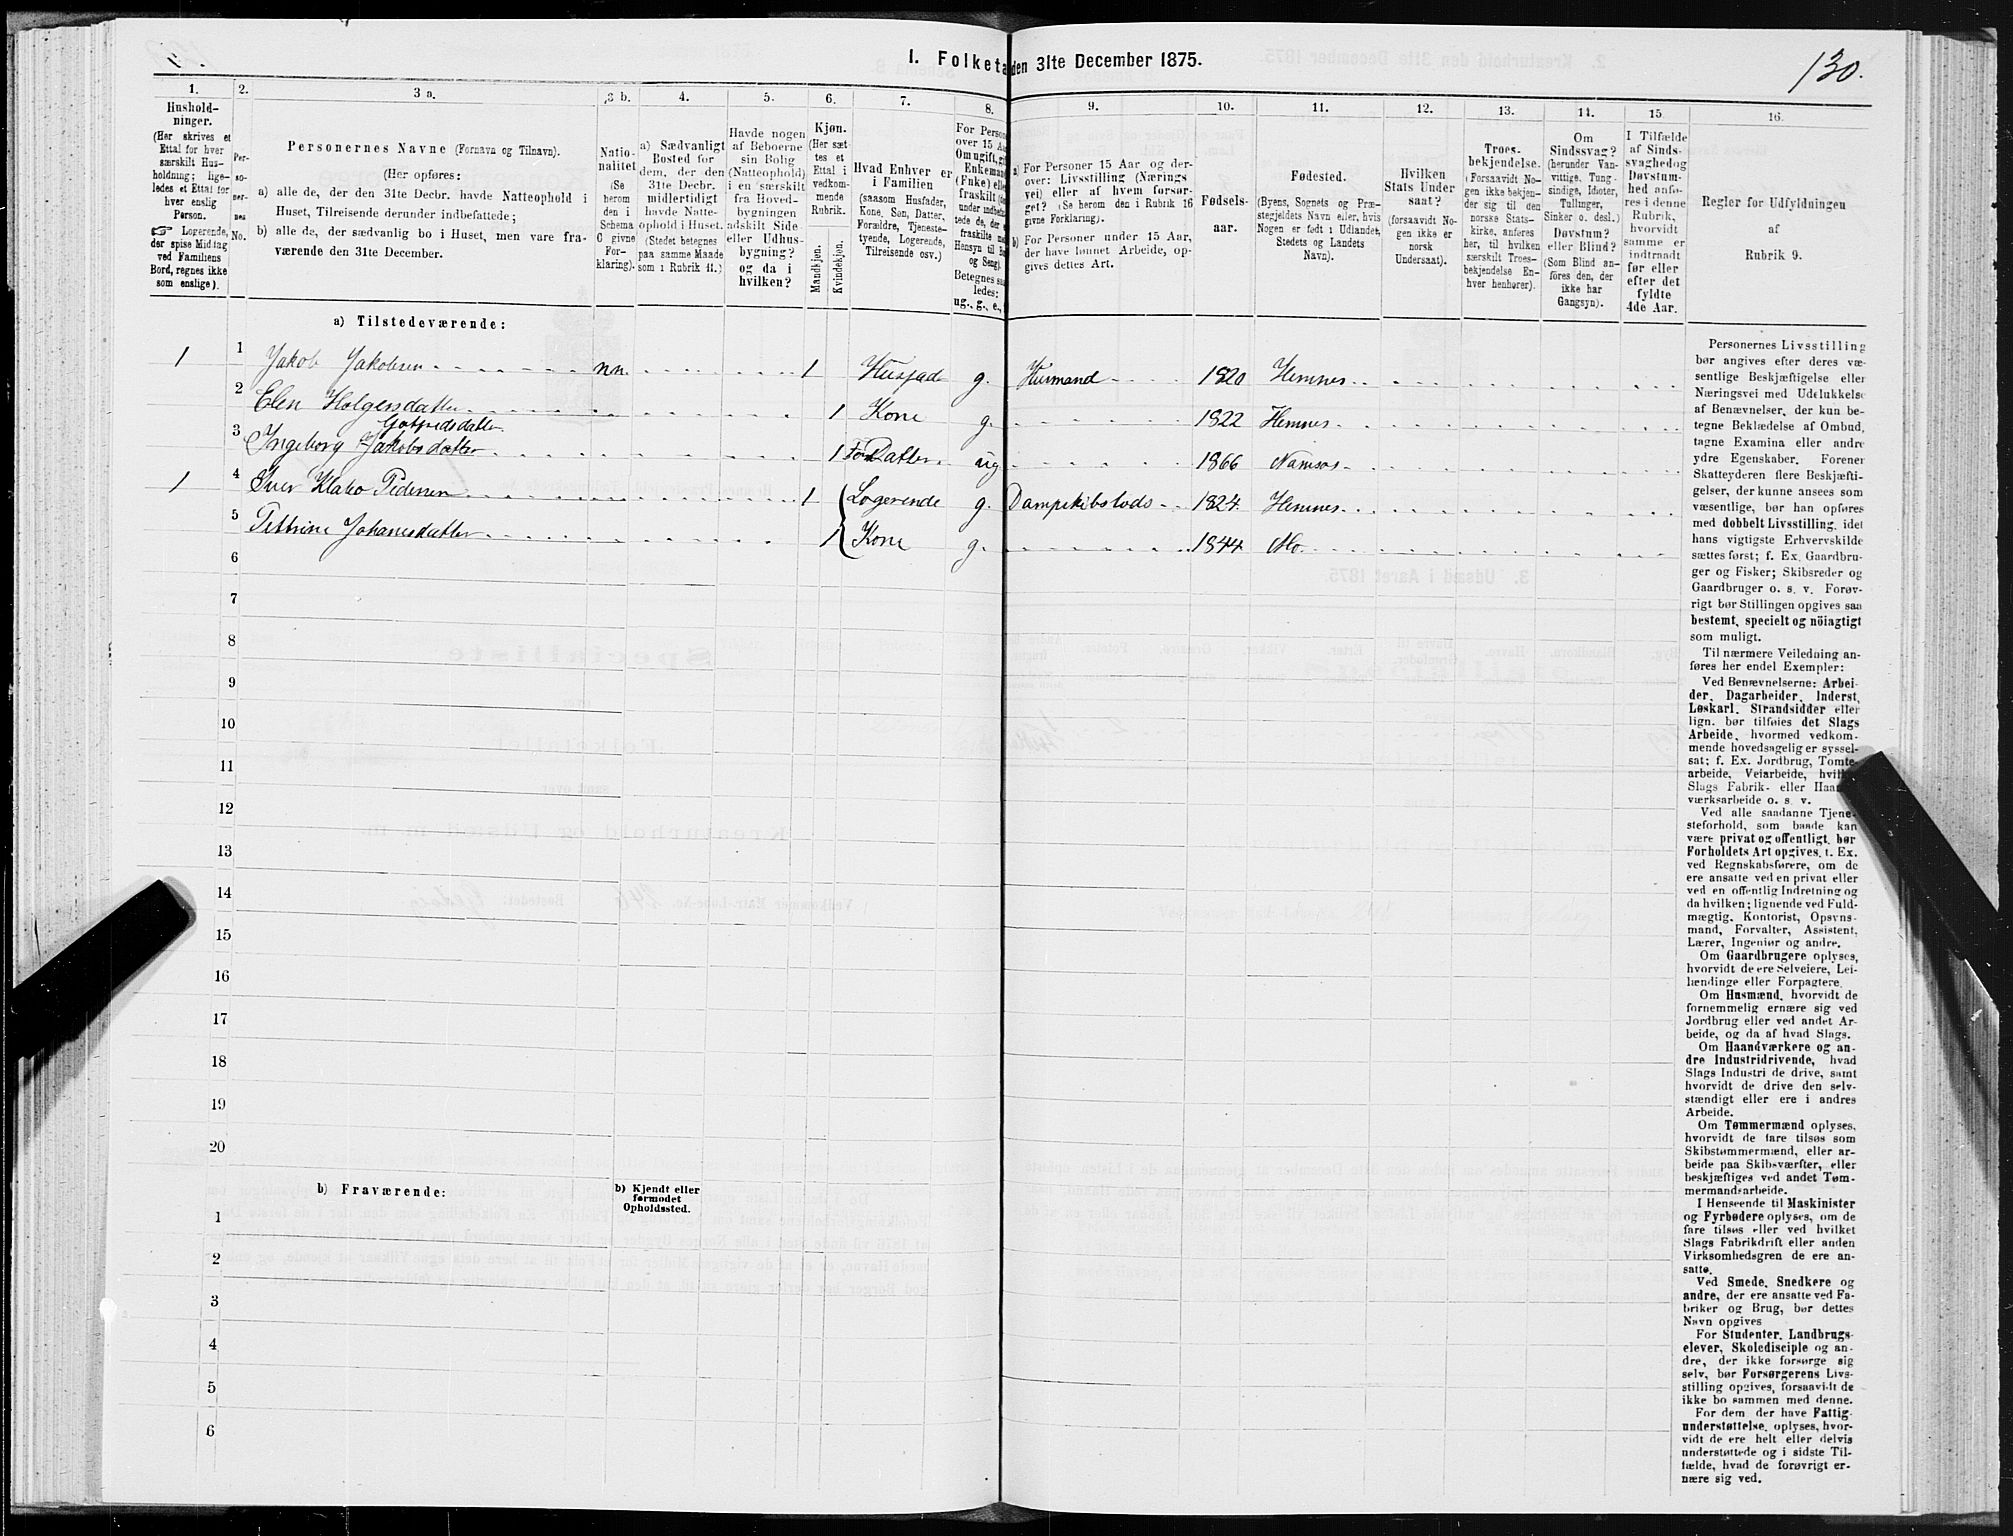 130.
I. Folketa den 31te December 1875.
1.
Hushold-
ninger.
(Her skrives et
Ettal for hver
særskilt Hus-
holdning; lige-
ledes et Ettal for
hver enslig
Person.
☞ Logerende,
der spise Middag
ved Familiens
Bord, regnes ikke
som enslige).
2.
Per-
so-
ner-
nes
No.
3 a.
Personernes Navne (Fornavn og Tilnavn).
(Her opføres:
a) alle de, der den 31te Decbr. havde Natteophold i
Huset, Tilreisende derunder indbefattede;
b) alle de, der sædvanlig bo i Huset, men vare fra-
værende den 31te December.
3 b.
Natio-
nalitet
(Se
herom
den i
Schema
C givne
For-
klaring).
4.
a) Sædvanligt
Bosted for
dem, der den
31te Decbr.
midlertidigt
havde Natte-
ophold i Huset.
(Stedet betegnes
paa samme Maade
som i Rubrik 11.)
5.
Havde nogen
af Beboerne
sin Bolig
(Natteophold)
i en særskilt
fra Hoved-
bygningen
adskilt Side-
eller Udhus-
bygning?
og da i
hvilken?
6.
Kjøn.
(Her sæt-
tes et
Ettal i
vedkom-
mende
Rubrik.
Mandkjøn.
Kvindekjøn.
7.
Hvad Enhver er
i Familien
(saasom Husfader,
Kone, Søn, Datter,
Forældre, Tjeneste-
tyende, Logerende,
Tilreisende osv.)
8.
For Person
over 15 Aa
Om ugift, gif
Enkemand
(Enke) elle
fraskilt
under indbefat
tede de, der e
fraskilte med
Hensyn til Bo
og Seng).
Betegnes saa
ledes:
ug., g., e.,
9.
a) For Personer 15 Aar og der-
over: Livsstilling (Nærings
vei) eller af hvem forsør-
get? (Se herom den i Rubrik 16
givne Forklaring).
b) For Personer under 15 Aar,
der have lønnet Arbeide, op-
gives dettes Art.
10.
Fødsels-
aar.
11.
Fødested.
(Byens, Sognets og Præ-
stegjeldets Navn eller, hvis
Nogen er født i Udlandet,
Stedets og Landets
Navn).
12.
Hvilken
Stats Under
saat?
(forsaavidt No-
gen ikke er
norsk
Undersaat).
13.
Troes-
bekjendelse.
(Forsaavidt No-
gen ikke bekjen-
der sig til den
norske Stats-
kirke, anføres
her, til hvilken
særskilt Troes-
bekjendelse En-
hver henhører).
14.
Om
Sindssvag?
(herunder Van-
vittige, Tung-
sindige, Idioter,
Tullinger,
Sinker o. desl.)
Døvstum?
eller Blind?
(Som Blind an-
føres den, der
ikke har
Gangsyn).
15.
I Tilfælde
af Sinds-
svaghed og
Døvstum-
hed anfø-
res i denne
Rubrik,
hvorvidt
samme er
indtraadt
før eller
efter det
fyldte
4de Aar.
16.
Regler for Udfyldningen
af
Rubrik 9.
a) Tilstedeværende:
1 1 Jakob Jakobsen nn. 1 Husfad g. Husmand 1820 Hemnes
2 Elen Holgersdatter 1 Kone g. 1822 Hemnes
Gotfredsdatter
3 Ingeborg Jakobsdatter 1 Datter ug 1866 Namsos
1 4 Iver Klabo Pedersen 1 Logerende g. Dampskibslods 1824 Hemnes
5 Pettrine Johanesdatter 1 Kone g. 1844 Mo.
6
7
8
9
10
11
12
13
14
15
16
17
18
19
20
b) Fraværende:
b) Kjendt eller
formodet
Opholdssted.
1
2
3
4
5
6
Personernes Livsstilling
bør angives efter deres væ-
sentlige Beskjæftigelse eller
Næringsvei med Udelukkelse
af Benævnelser, der kun be-
tegne Beklædelse af Ombud,
tagne Examina eller andre
ydre Egenskaber. Forener
Skatteyderen flere Beskjæfti-
gelser, der kunne ansees som
væsentlige, bør han opføres
med dobbelt Livsstilling, idet
hans vigtigste Erhvervskilde
sættes først; f. Ex. Gaardbru-
ger og Fisker; Skibsreder og
Gaardbruger o. s. v. Forøv-
rigt bør Stillingen opgives saa
bestemt, specielt og nöiagtigt
som muligt.
Til nærmere Veiledning an-
føres her endel Exempler:
Ved Benævnelserne: Arbei-
der, Dagarbeider, Inderst,
Løskarl, Strandsidder eller
lign. bør tilføies det Slags
Arbeide, hvormed vedkom-
mende hovedsagelig er syssel-
sat; f. Ex. Jordbrug, Tomte-
arbeide, Veiarbeide, hvilket
Slags Fabrik- eller Haand-
værksarbeide o. s. v.
Ved alle saadanne Tjene-
steforhold, som baade kan
være privat og offentligt, bør
Forholdets Art opgives, t. Ex.
ved Regnskabsførere, om de
ere ansatte ved en privat eller
ved en offentlig Indretning og
da hvilken; lignende ved Fuld-
mægtig, Kontorist, Opsyns-
mand, Forvalter, Assistent,
Lærer, Ingeniør og andre.
Om Gaardbrugere oplyses,
hvorvidt de ere Selveiere, Lei-
lændinge eller Forpagtere.
Om Husmænd, hvorvidt de
fornemmelig ernære sig ved
Jordbrug eller ved andet Ar-
beide, og da af hvad Slags.
Om Haandværkere og an-
dre Industridrivende, hvad
Slags Industri de drive, samt
hvorvidt de drive den selv-
stændigt eller ere i andres
Arbeide.
Om Tømmermænd oplyses,
hvorvidt de fare tilsøs som
Skibstømmermænd, eller ar-
beide paa Skibsværfter, eller
beskjæftiges ved andet Tøm-
mermandsarbeide.
I Henseende til Maskinister
og Fyrbødere oplyses, om de
fare tilsøs eller ved hvilket
Slags Fabrikdrift eller anden
Virksomhedsgren de ere an-
satte.
Ved Smede, Snedkere og
andre, der ere ansatte ved Fa-
briker og Brug, bør dettes
Navn opgives
For Studenter, Landbrugs-
elever, Skoledisciple og an-
dre, der ikke forsørge sig
selv, bør Forsørgerens Livs-
stilling opgives, forsaavidt de
ikke bo sammen med denne.
For dem, der have Fattig-
understøttelse, oplyses, hvor-
vidt de ere helt eller delvis
understøttede og i sidste Til-
fælde, hvad de forøvrigt er-
nære sig ved.